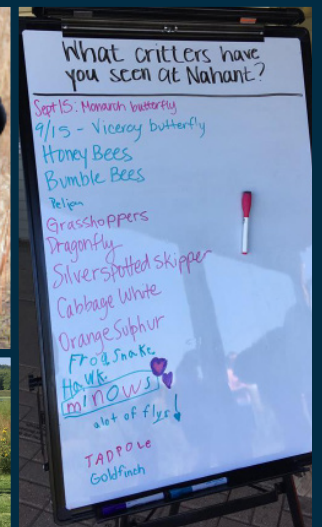 What critters have
you seen at Nahant?
Sept 15: Monarch butterfly
9/15 - Viceroy butterfly
Honey Bees
Bumble Bees
Pelijan
Grasshoppers
Dragonfly
Silverspotted skipper
Cabbage White
Orange Sulphur
Frog Snake
Hawk
minows
alot of flys!
TADPOLe
Goldfinch